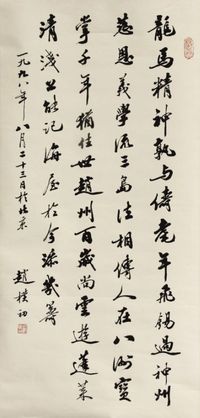 龍馬精神孰与儔虎年飛錫過神州
慈恩義學流三島法相傳人在八洲寶
掌千年猶住世趙州百歲尚雲遊蓬萊
清淺公能記海屋於今添幾籌
一九九八年八月二十三日於北京
趙樸初